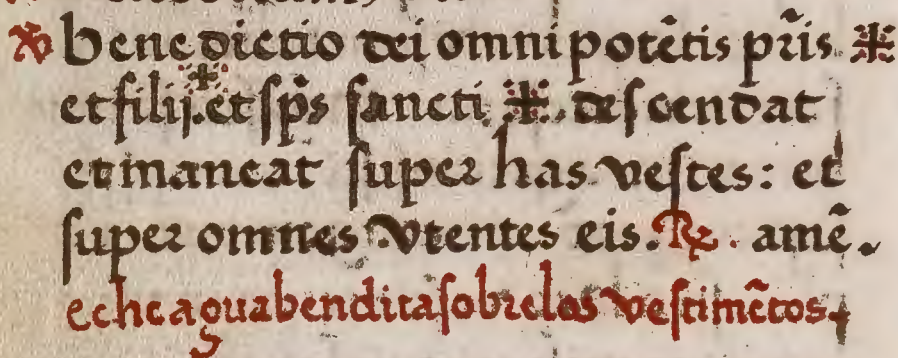 ✠ benedictio dei omnipotẽtis pr̃is ✠
et filij ✠ et sp̃s sancti ✠. descendat
et maneat super has vestes: et
super omnes vtentes eis. ℟. amẽ.
eche agua bendita sobre los vestimẽtos.